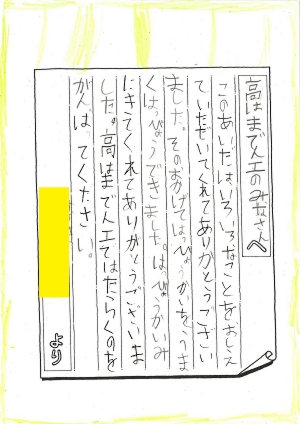 高はまでん工のみなさんへ
このあいだはいろいろなことをおしえ
ていただいてくれてありがとうござい
ました。そのおかげではっぴょうかいをうま
くはっぴょうできました。はっぴょうかいみ
にきてくれてありがとうございま
した。高はまでん工ではたらくのを
がんばってください。
より